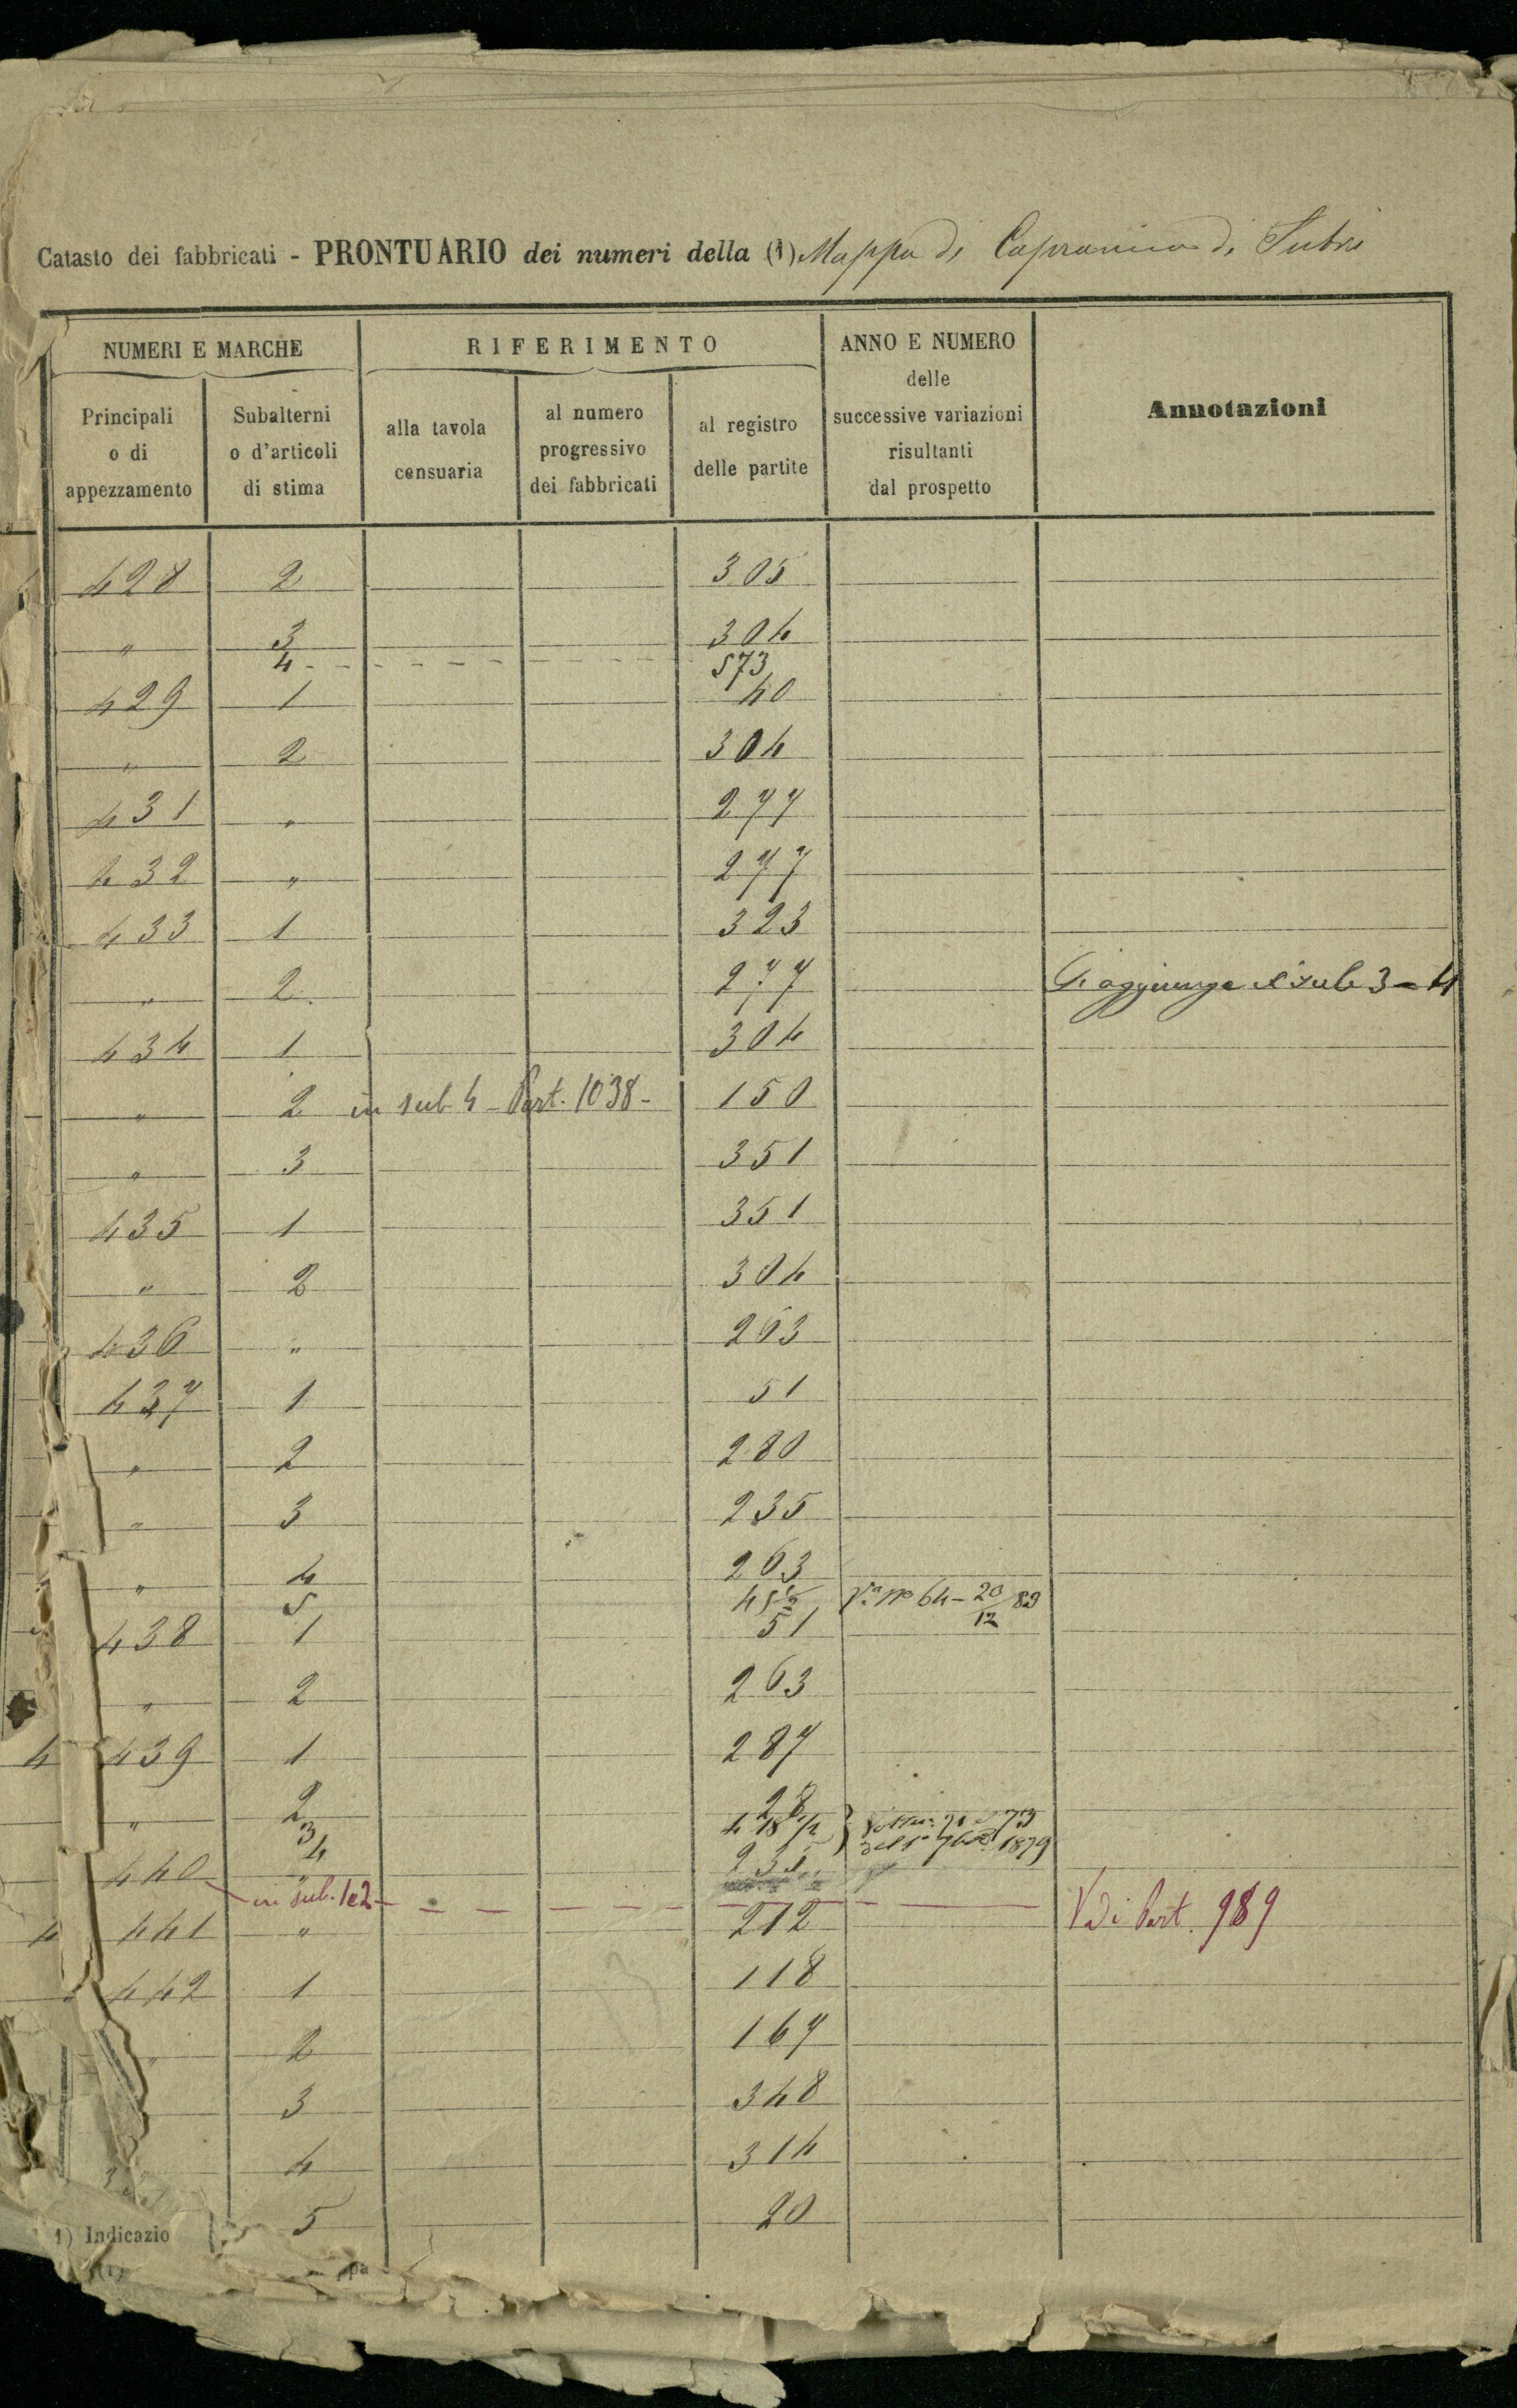 Catasto dei fabbricati - PRONTUARIO dei numeri della (1) Mappa di Capranica di Sutri
NUMERI E MARCHE
RIFERIMENTO
ANNO E NUMERO
delle
successive variazioni
risultanti
dal prospetto
Annotazioni
Principali
o di
appezzamento
Subalterni
o d'articoli
di stima
alla tavola
censuaria
al numero
progressivo
dei fabbricati
al registro
delle partite
428 2 305
" 3 304
4 573
429 1 40
" 2 304
431 " 277
432 " 277
433 1 323
" 2 277 Si aggiunge il sub 3 - 4
434 1 304
" 2 in sub 4 - Part. 1038 - 150
" 3 351
435 1 351
" 2 304
436 " 263
437 1 51
" 2 280
" 3 235
" 4 263
5 45 1/2 64 - 20/12 83
438 1 51
" 2 263
439 1 287
" 2 28
3 418 1/2 73
4 1879
440 " 235
in sub. 1 e 2 Vedi Part. 989
441 " 212
442 1 118
" 2 167
3 348
4 314
5 20
1) Indicazio
pa